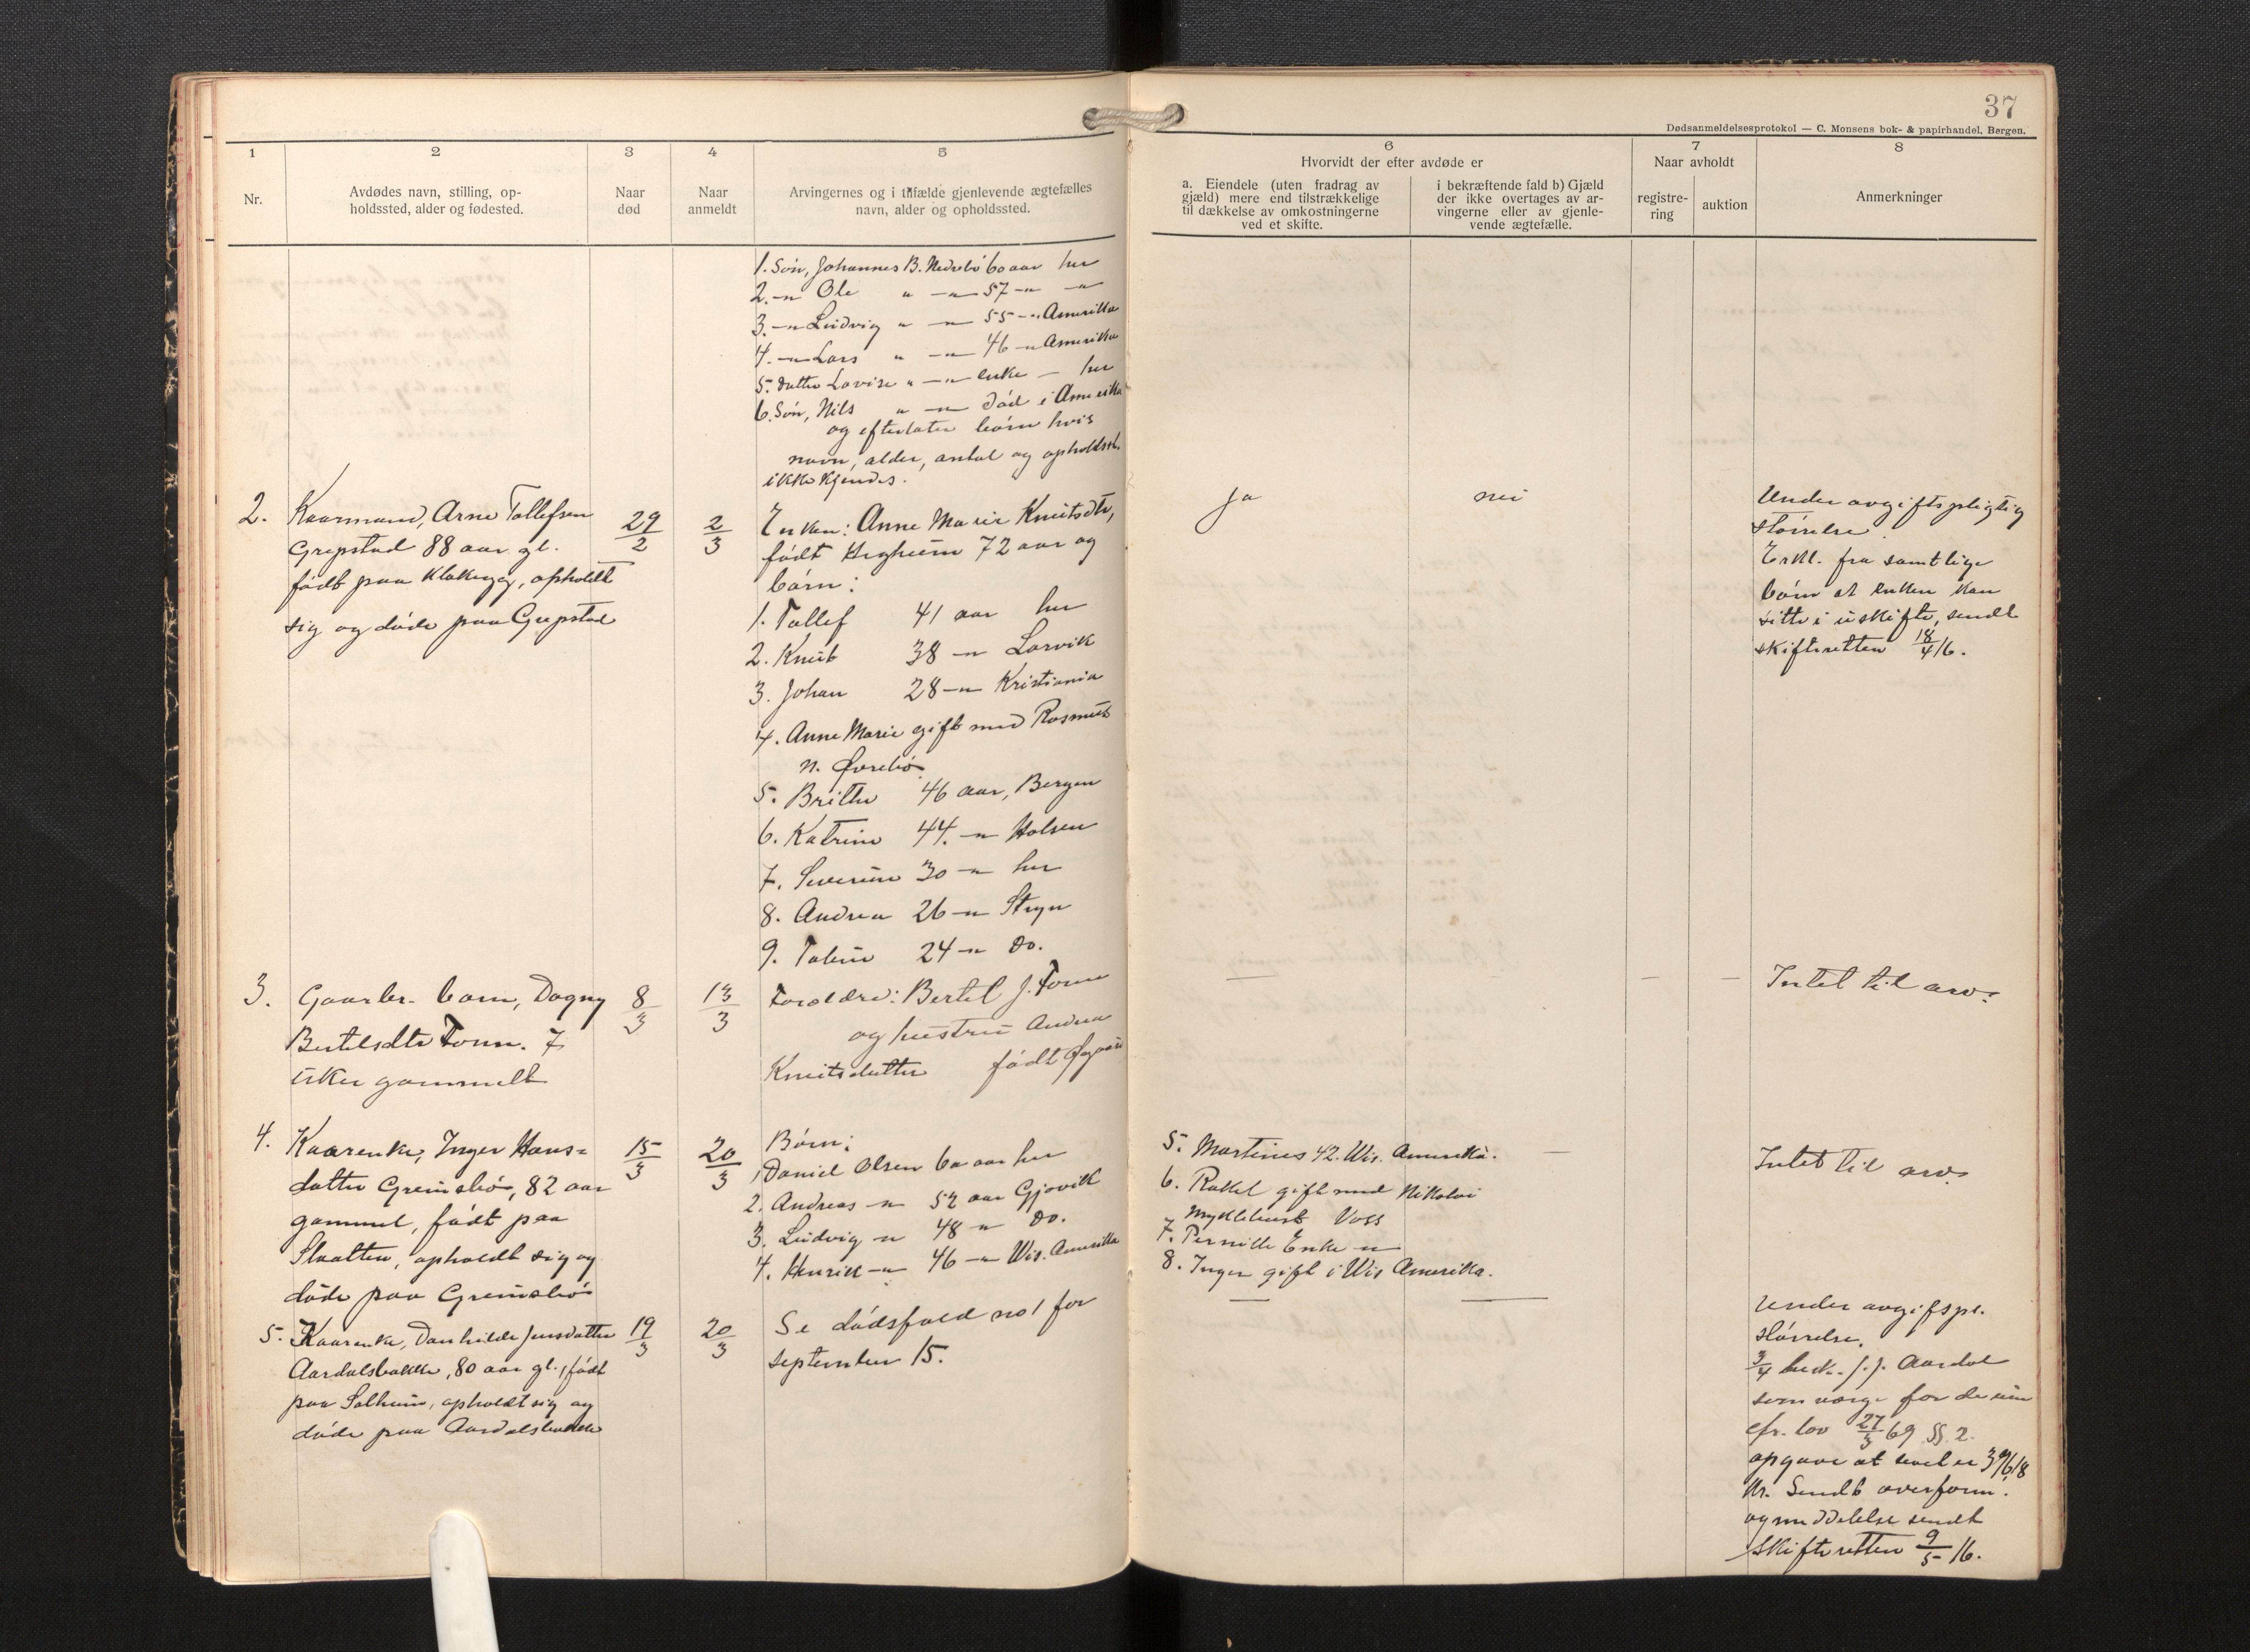 37
Dødsanmeldelsesprotokol — C. Monsens bok- & papirhandel, Bergen.
1
2
3
4
5
6
7
8
Nr.
Avdødes navn, stilling, op-
holdssted, alder og fødested.
Naar
død
Naar
anmeldt
Arvingernes og i tilfælde gjenlevende ægtefælles
navn, alder og opholdssted.
Hvorvidt der efter avdøde er
a. Eiendele (uten fradrag av
gjæld) mere end tilstrækkelige
til dækkelse av omkostningerne
ved et skifte.
i bekræftende fald b) Gjæld
der ikke overtages av ar-
vingerne eller av gjenle-
vende ægtefælle.
Naar avholdt
registre-
ring
auktion
Anmerkninger
1. Søn, Johannes B. Nedrebø 60 aar her
2. -"- Ole " -"- 57 -"- -"-
3. -"- Ludvig " -"- 55 -"- Amerika
4. -"- Lars " -"- 46 -"- Amerika
5. datter Lovise " -"- enke — her
6. Søn, Nils " -"- død i Amerika
og efterlater børn hvis
navn, alder, antal og opholdsst.
ikke kjendes.
2. Kaarmand, Arne Tollefsen
Grepstad 88 aar gl.
født paa Klakegg, opholdt
sig og døde paa Grepstad
29/2
2/3
Enken: Anne Marie Knutsdtr,
født Årgheim 72 aar og
børn:
1. Tollef 41 aar her
2. Knut 38 -"- Larvik
3. Johan 28 -"- Kristiania
4. Anne Marie gift med Rasmus
N. Øvrebø
5. Brithe 46 aar, Bergen
6. Katrine 44. -"- Holsen
7. Severine 30 -"- her
8. Andrea 26 -"- Stryn
9. Taline 24 -"- do.
Ja
nei
Under avgiftspligtig
størrelse.
Erkl. fra samtlige
børn at enken kan
sitte i uskifte, sendt
skifteretten 18/4 16.
3. Gaarbr. barn, Dagny
Bertelsdtr Fonn. 7
uker gammelt
8/3
13/3
Foreldre: Bertel J. Fonn
og hustru Andrea
Knutsdatter født Øygard
—
—
—
Intet til arv.
4. Kaarenke, Inger Hans=
datter Greinsbø, 82 aar
gammel, født paa
Slaatten, opholdt sig og
døde paa Greinsbø
15/3
20/3
Børn:
1. Daniel Olsen 60 aar her
2. Andreas -"- 52 aar Gjøvik
3. Ludvig -"- 48 -"- do.
4. Henrik -"- 46 -"- Wis. Amerika
5. Martines 42. Wis. Amerika.
6. Rakel gift med Nikolai
Myklebust Voss
7. Pernille Enke -"-
8. Inger gift i Wis Amerika.
—
Intet til arv.
5. Kaarenke, Danhilde Jensdatter
Aardalsbakke, 80 aar gl., født
paa Solheim, opholdt sig og
døde paa Aardalsbakke
19/3
20/3
Se dødsfald no 1 for
september 15.
—
—
Under avgifspl.
størrelse.
3/4 besk. J. J. Aardal
som verge for de um
cfr. lov 27/3 69 §§ 2.
opgave at boet er
kr. Sendt overform.
og meddelelse sendt
skifteretten 9/5 16.